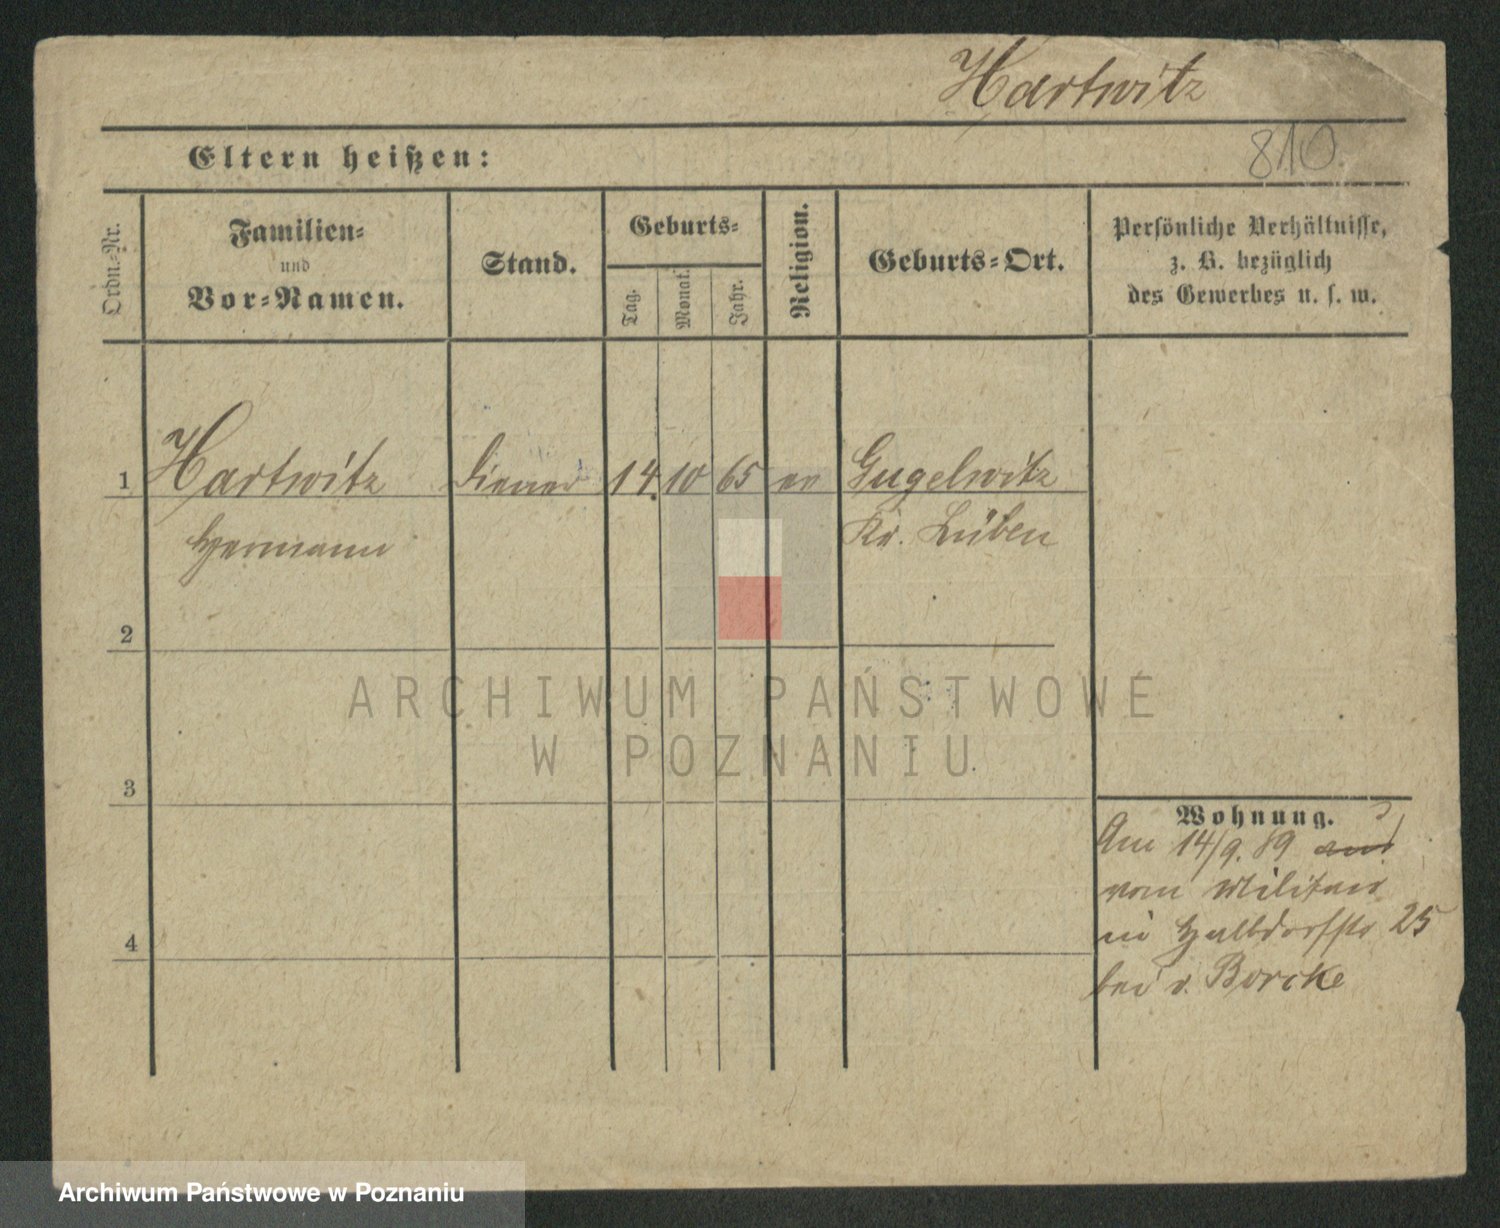 Hartwitz
810.
Eltern heißen:
Ordn.-Nr.
Familien-
und
Vor-Namen.
Stand.
Geburts-
Tag.
Monat.
Jahr.
Religion.
Geburts-Ort.
Persönliche Verhältnisse,
z. B. bezüglich
des Gewerbes u. s. w.
1 Hartwitz Diener 14. 10 65 ev Gugelwitz
Hermann Kr. Lüben
2
3
4
Wohnung.
Am 14/9. 89
vom Militair
in Halbdorfstr 25
bei v. Borcke
ARCHIWUM PAŃSTWOWE
W POZNANIU
Archiwum Państwowe w Poznaniu